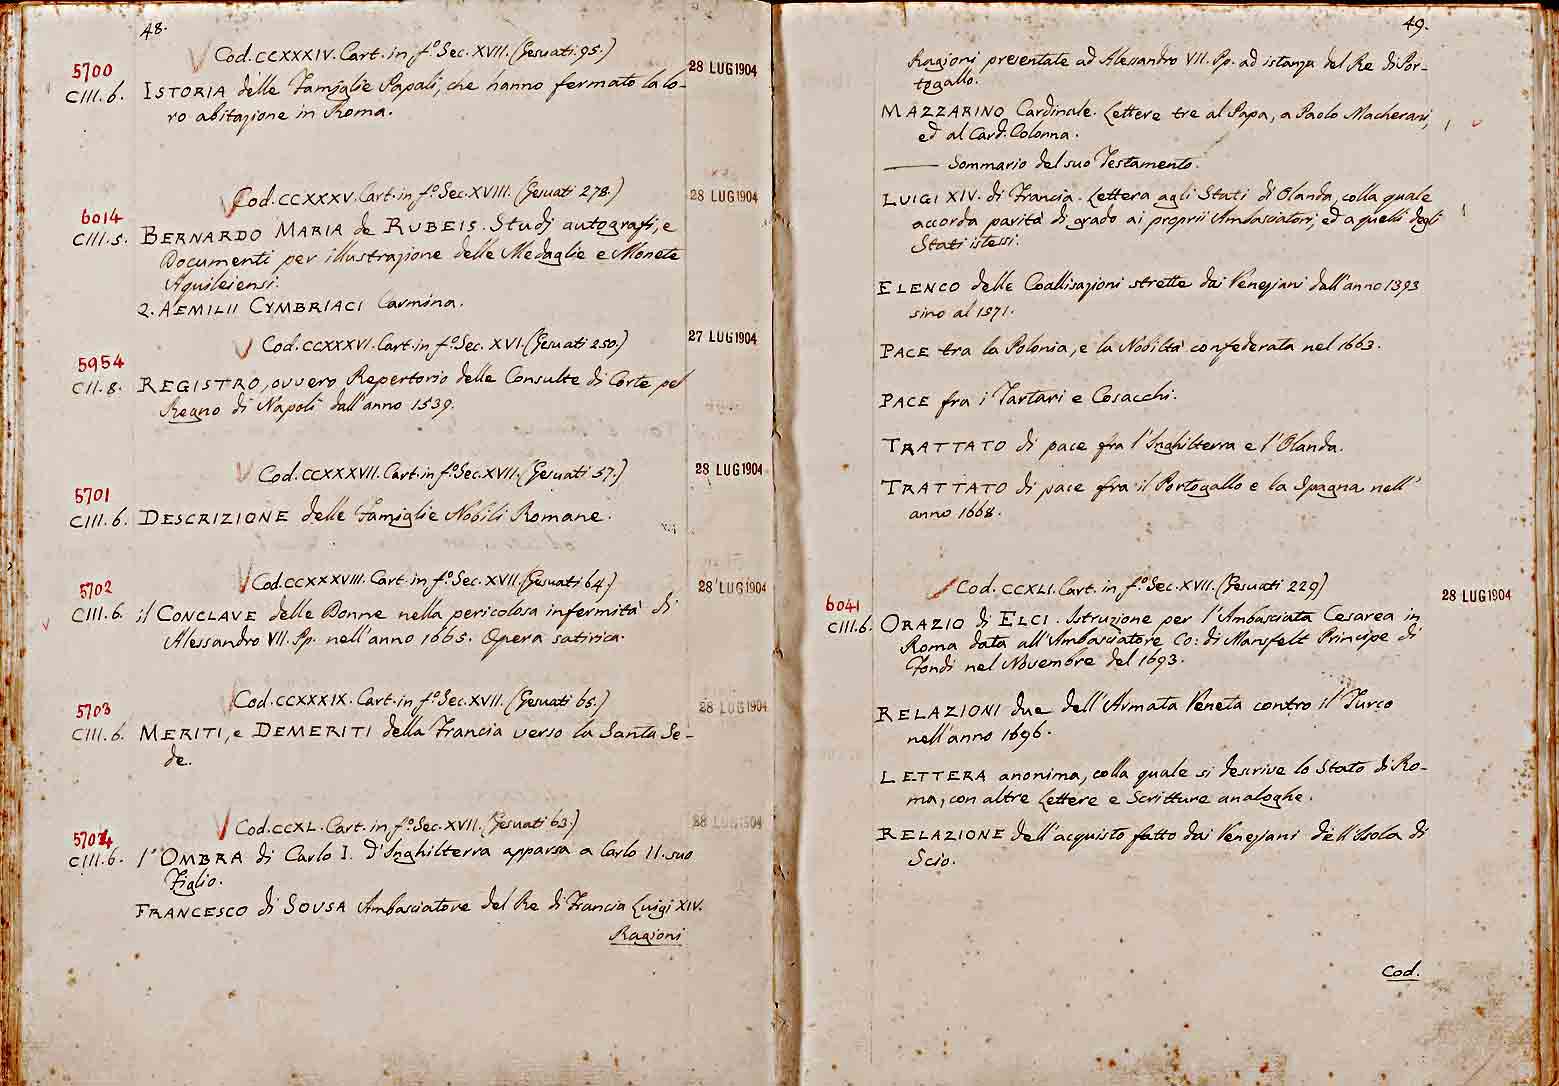 48.
Cod. CCXXXIV. Cart. in fº Sec. XVII. (Gesuati 95.)
5700
28 LUG 1904
CIII. 6. ISTORIA delle Famiglie Papali, che hanno fermato la lo-
ro abitazione in Roma.
Cod. CCXXXV. Cart. in fº Sec. XVIII. (Gesuati 278.)
28 LUG 1904
6014
CIII. 5. BERNARDO MARIA de RUBEIS. Studj autografi, e
Documenti per illustrazione delle Medaglie e Monete
Aquileiensi.
2. AEMILII CYMBRIACI Carmina.
Cod. CCXXXVI. Cart. in fº Sec. XVI. (Gesuati 250.)
27 LUG 1904
5954
CII. 8. REGISTRO, ovvero Repertorio delle Consulte di Corte pel
Regno di Napoli dall'anno 1539.
Cod. CCXXXVII. Cart. in fº Sec. XVII. (Gesuati 57.)
28 LUG 1904
5701
CIII. 6. DESCRIZIONE delle Famiglie Nobili Romane.
Cod. CCXXXVIII. Cart. in fº Sec. XVII. (Gesuati 64.)
28 LUG 1904
5702
CIII. 6. il CONCLAVE delle Donne nella pericolosa infermità di
Alessandro VII. Pp. nell'anno 1665. Opera satirica.
Cod. CCXXXIX. Cart. in fº Sec. XVII. (Gesuati 65.)
28 LUG 1904
5703
CIII. 6. MERITI, e DEMERITI della Francia verso la Santa Se-
de.
Cod. CCXL. Cart. in fº Sec. XVII. (Gesuati 63.)
28 LUG 1904
5704
CIII. 6. l'OMBRA di Carlo I. d'Inghilterra apparsa a Carlo II. suo
Figlio.
FRANCESCO di SOUSA Ambasciatore del Re di Francia Luigi XIV.
Ragioni
49.
Ragioni presentate ad Alessandro VII. Pp. ad istanza del Re di Por-
togallo.
MAZZARINO Cardinale. Lettere tre al Papa, a Paolo Macherani,
ed al Card. Colonna.
——— Sommario del suo Testamento.
LUIGI XIV. di Francia. Lettera agli Stati di Olanda, colla quale
accorda parità di grado ai proprii Ambasciatori, ed a quelli degli
Stati istessi.
ELENCO delle Coallisazioni strette dai Veneziani dall'anno 1393
sino al 1571.
PACE tra la Polonia, e la Nobiltà confederata nel 1663.
PACE fra i Tartari e Cosacchi.
TRATTATO di pace fra l'Inghilterra e l'Olanda.
TRATTATO di pace fra il Portogallo e la Spagna nell'
anno 1668.
Cod. CCXLI. Cart. in fº Sec. XVII. (Gesuati 229)
28 LUG 1904
6041
CIII. 6. ORAZIO di ELCI. Istruzione per l'Ambasciata Cesarea in
Roma data all'Ambasciatore Co: di Mansfelt Principe di
Fondi nel Novembre del 1693.
RELAZIONI due dell'Armata Veneta contro il Turco
nell'anno 1696.
LETTERA anonima, colla quale si descrive lo Stato di Ro-
ma, con altre Lettere e Scritture analoghe.
RELAZIONE dell'acquisto fatto dai Veneziani dell'Isola di
Scio.
Cod.